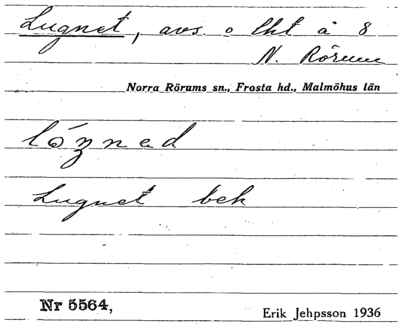 Lugnet, avs. o lht å 8
N. Rörum
Norra Rörums sn., Frosta hd., Malmöhus län
lóʒned
Lugnet beh
Nr 5564,
Erik Jehpsson 1936